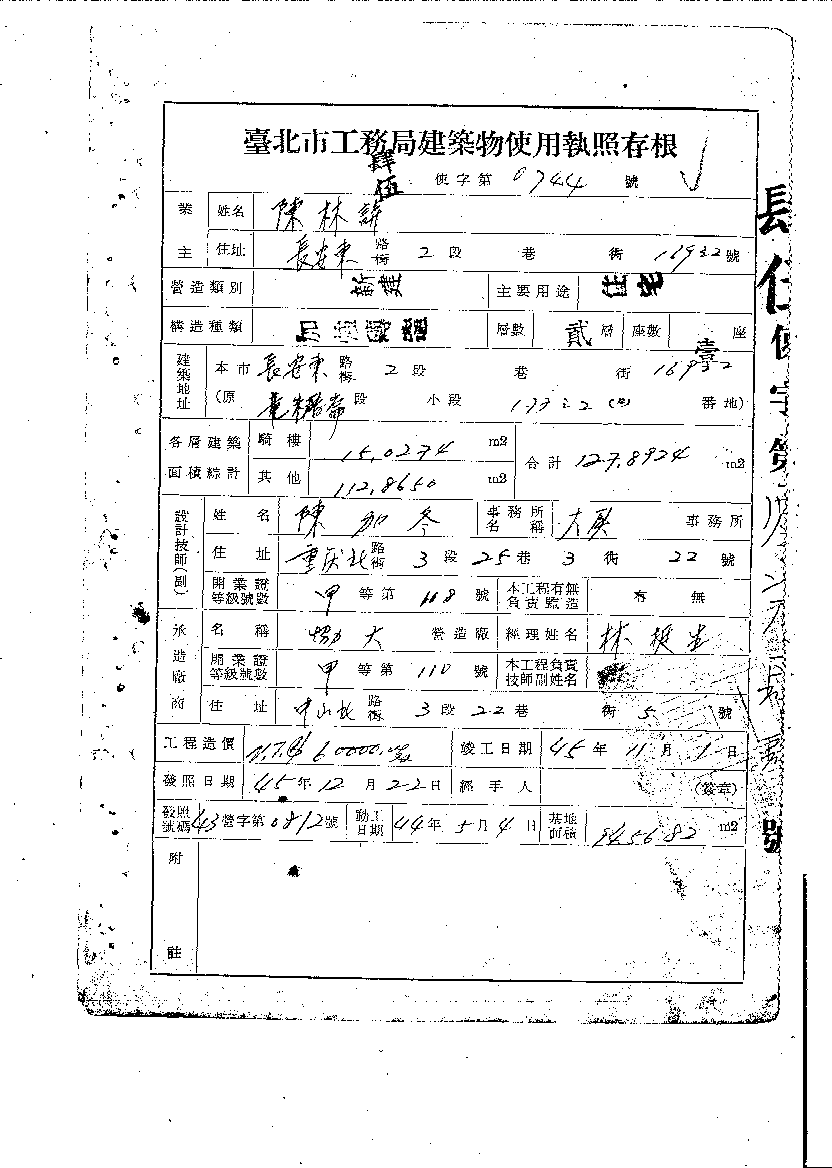 臺北市工務局建築物使用執照存根
肆伍 使字第 0744 號
業主 姓名 陳林
住址 長安東 路街 2 段 巷 街 號
營造類別 新建 主要用途 住宅
構造種類 層數 貳 層 座數 壹 座
建築地址 本市 長安東 路街 2 段 巷 街
(原 段 小段 番地)
各層建築面積綜計 騎樓 15.0274 m2
其他 112.8650 m2 合計 127.8924 m2
設計技師(副) 姓名 陳加冬 事務所名稱 事務所
住址 重庆北 路街 3 段 25 巷 3 街 22 號
開業證等級號數 甲 等第 118 號 本工程有無負責監造 有 無
承造廠商 名稱 大 營造廠 經理姓名 林挺生
開業證等級號數 甲 等第 110 號 本工程負責技師副姓名
住址 中山北 路街 3 段 22 巷 街 5 號
工程造價 N.T.$ 60000.00 竣工日期 45 年 11 月 1 日
發照日期 45 年 12 月 22 日 經手人 (簽章)
發照號碼 43 營字第 0812 號 動工日期 44 年 5 月 4 日 基地面積 m2
附註
長 使字第 號